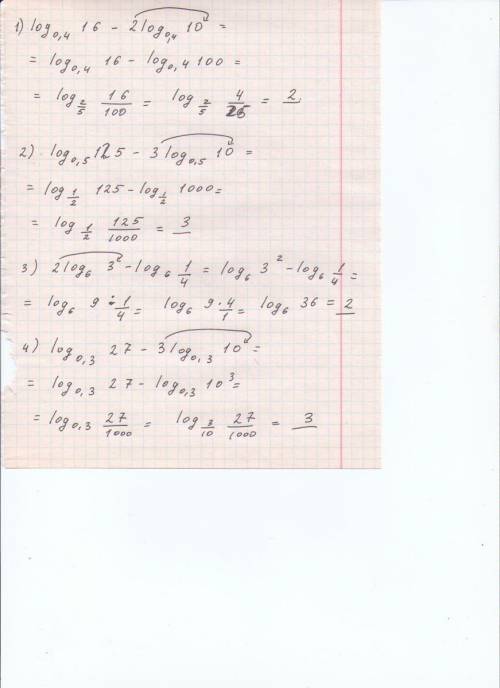 1) log₀,₄ 16 − 2log₀,₄ 10 =
= log₀,₄ 16 − log₀,₄ 100 =
= log_{2/5} 16/100 = log_{2/5} 4/25 = 2
2) log₀,₅ 125 − 3log₀,₅ 10 =
= log_{1/2} 125 − log_{1/2} 1000 =
= log_{1/2} 125/1000 = 3
3) 2log₆ 3 − log₆ 1/4 = log₆ 3² − log₆ 1/4 =
= log₆ 9 ÷ 1/4 = log₆ 9 · 4/1 = log₆ 36 = 2
4) log₀,₃ 27 − 3log₀,₃ 10 =
= log₀,₃ 27 − log₀,₃ 10³ =
= log₀,₃ 27/1000 = log_{3/10} 27/1000 = 3